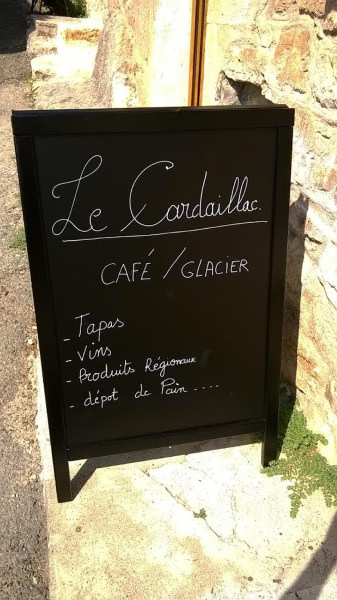 Le Cardaillac.
CAFÉ / GLACIER
- Tapas
- Vins
- Produits Régionaux
- dépot de Pain ....